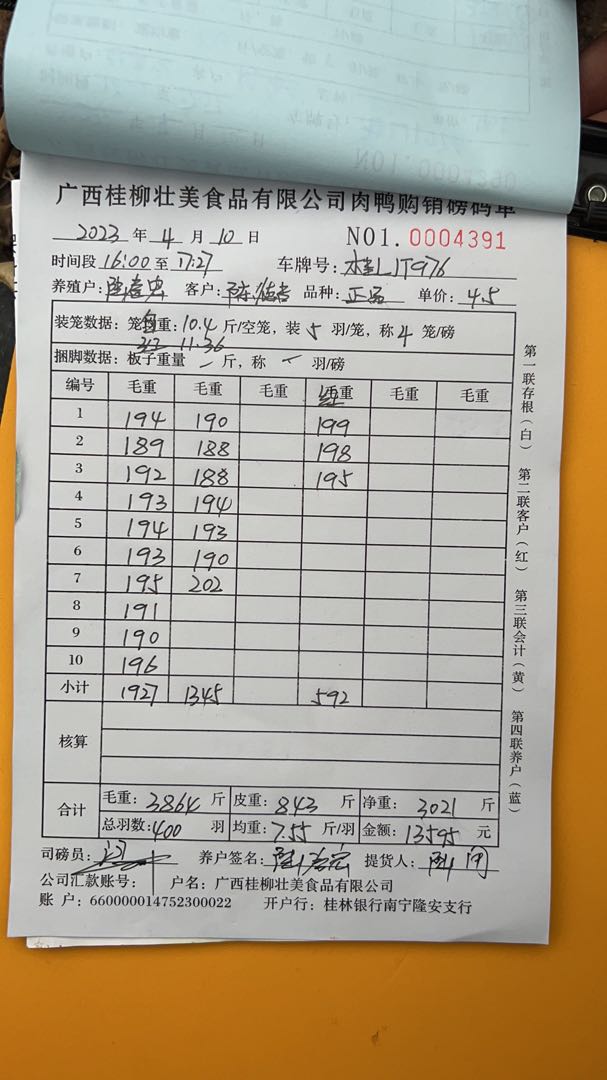 NO1.0004390
广西桂柳壮美食品有限公司肉鸭购销磅码单
2023 年 4 月 10 日 NO1.0004391
时间段 16:00 至 17:27 车牌号: 桂L JT976
养殖户: 客户: 品种: 正品 单价: 4.5
装笼数据: 笼自重: 10.4 斤/空笼, 装 5 羽/笼, 称 4 笼/磅
红 11.36
捆脚数据: 板子重量 斤, 称 羽/磅
编号 毛重 毛重 毛重 红毛重 毛重 毛重
1 194 190 199
2 189 188 198
3 192 188 195
4 193 194
5 194 193
6 193 190
7 195 202
8 191
9 190
10 196
小计 1927 1345 592
核算
合计 毛重: 3864 斤 皮重: 843 斤 净重: 3021 斤
总羽数: 400 羽 均重: 7.55 斤/羽 金额: 13595 元
司磅员: 养户签名: 提货人:
公司汇款账号: 户名: 广西桂柳壮美食品有限公司
账 户: 660000014752300022 开户行: 桂林银行南宁隆安支行
第一联存根(白) 第二联客户(红) 第三联会计(黄) 第四联养户(蓝)